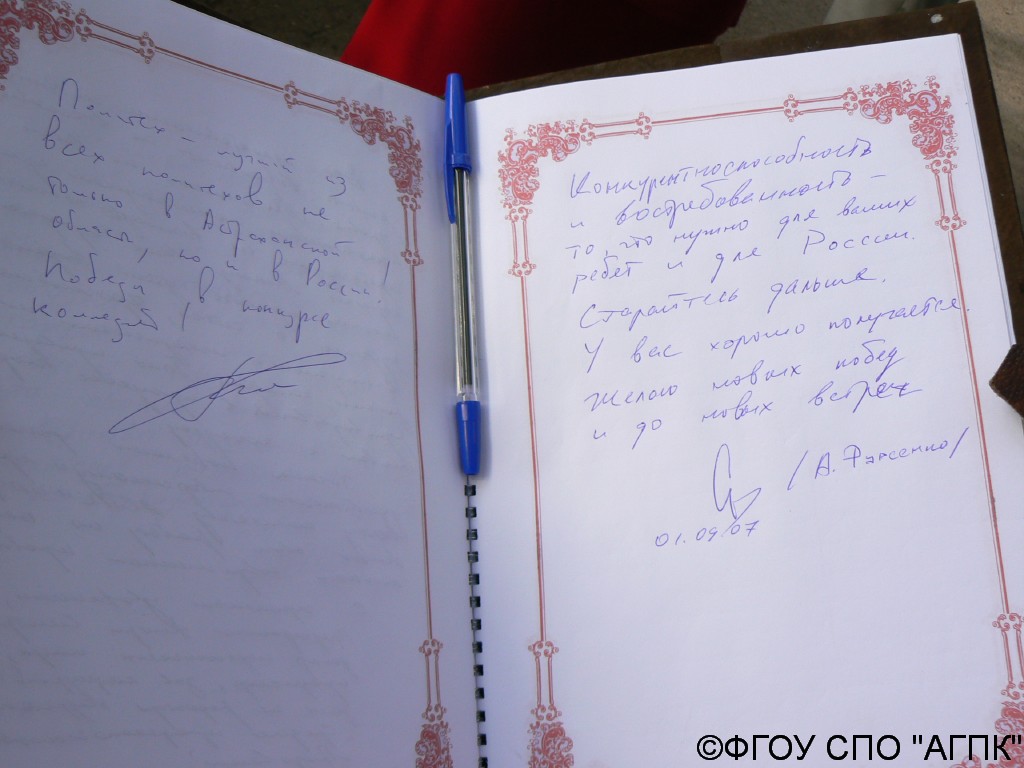 Политех – лучший из
всех политехов не
только в Астраханской
области, но и в России!
Победы в конкурсе
колледжей!
Конкурентноспособность
и востребованность –
то, что нужно для ваших
ребят и для России.
Старайтесь дальше.
У вас хорошо получается.
Желаю новых побед
и до новых встреч
/А. Фурсенко/
01.09.07
©ФГОУ СПО "АГПК"